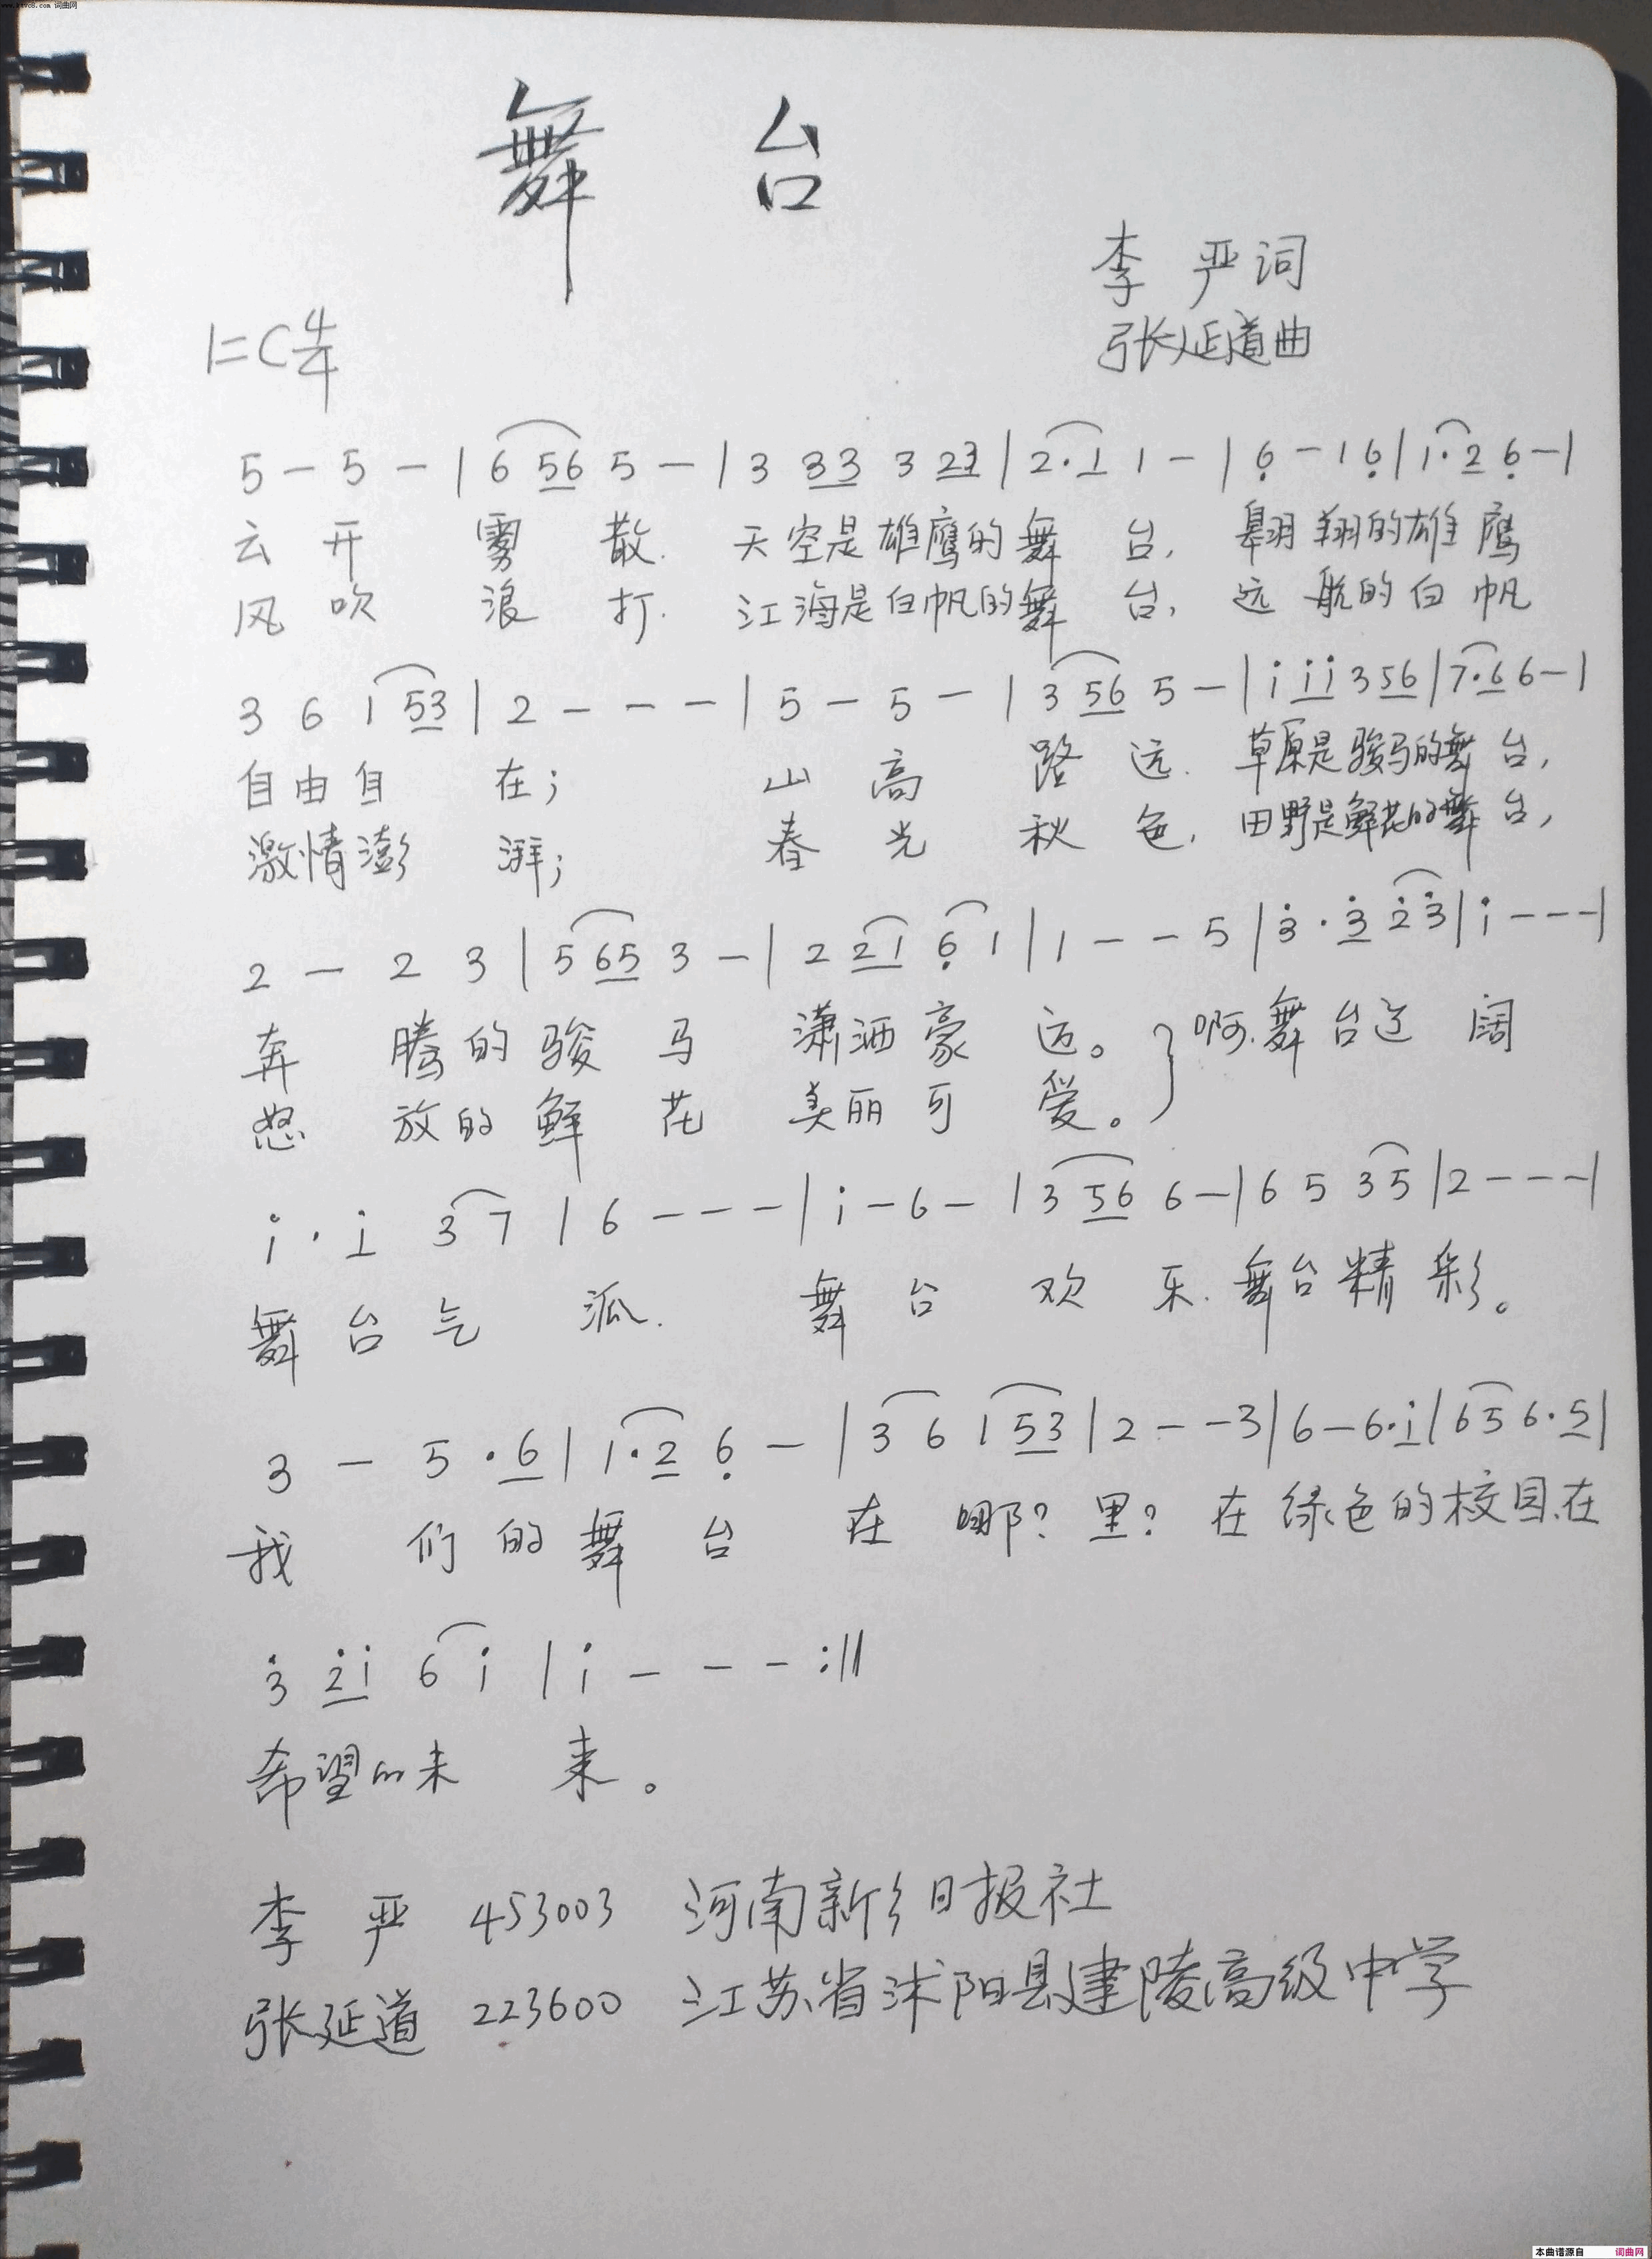 www.ktvc8.com 词曲网
舞 台
李 严词
1=C 4/4
张延道曲
5 – 5 – | 6 56 5 – | 3 33 3 23 | 2·1 1 – | 6̣ – 1 6̣ | 1·2 6̣ – |
云 开 雾 散. 天空是雄鹰的舞 台, 翱翔的雄鹰
风 吹 浪 打. 江海是白帆的舞 台, 远航的白帆
3 6 1 53 | 2 – – – | 5 – 5 – | 3 56 5 – | i ii 3 56 | 7·6 6 – |
自由自 在; 山 高 路 远. 草原是骏马的舞台,
激情澎 湃; 春 光 秋 色, 田野是鲜花的舞台,
2 – 2 3 | 5 65 3 – | 2 21 6̣ 1 | 1 – – 5 | 3̇·3̇ 2̇3̇ | i – – – |
奔 腾的骏 马 潇洒豪 迈。 } 啊.舞台辽 阔
怒 放的鲜 花 美丽可 爱。
i · i 3 7 | 6 – – – | i – 6 – | 3 56 6 – | 6 5 35 | 2 – – – |
舞台气 派. 舞 台 欢 乐. 舞台精彩。
3 – 5 · 6 | 1·2 6̣ – | 3 6 1 53 | 2 – – 3 | 6 – 6·i | 65 6·5 |
我 们的舞 台 在 哪? 里? 在绿色的校园.在
3̇ 2̇i 6 i | i – – – :||
希望的未 来。
李 严 453003 河南新乡日报社
张延道 223600 江苏省沭阳县建陵高级中学
本曲谱源自 词曲网